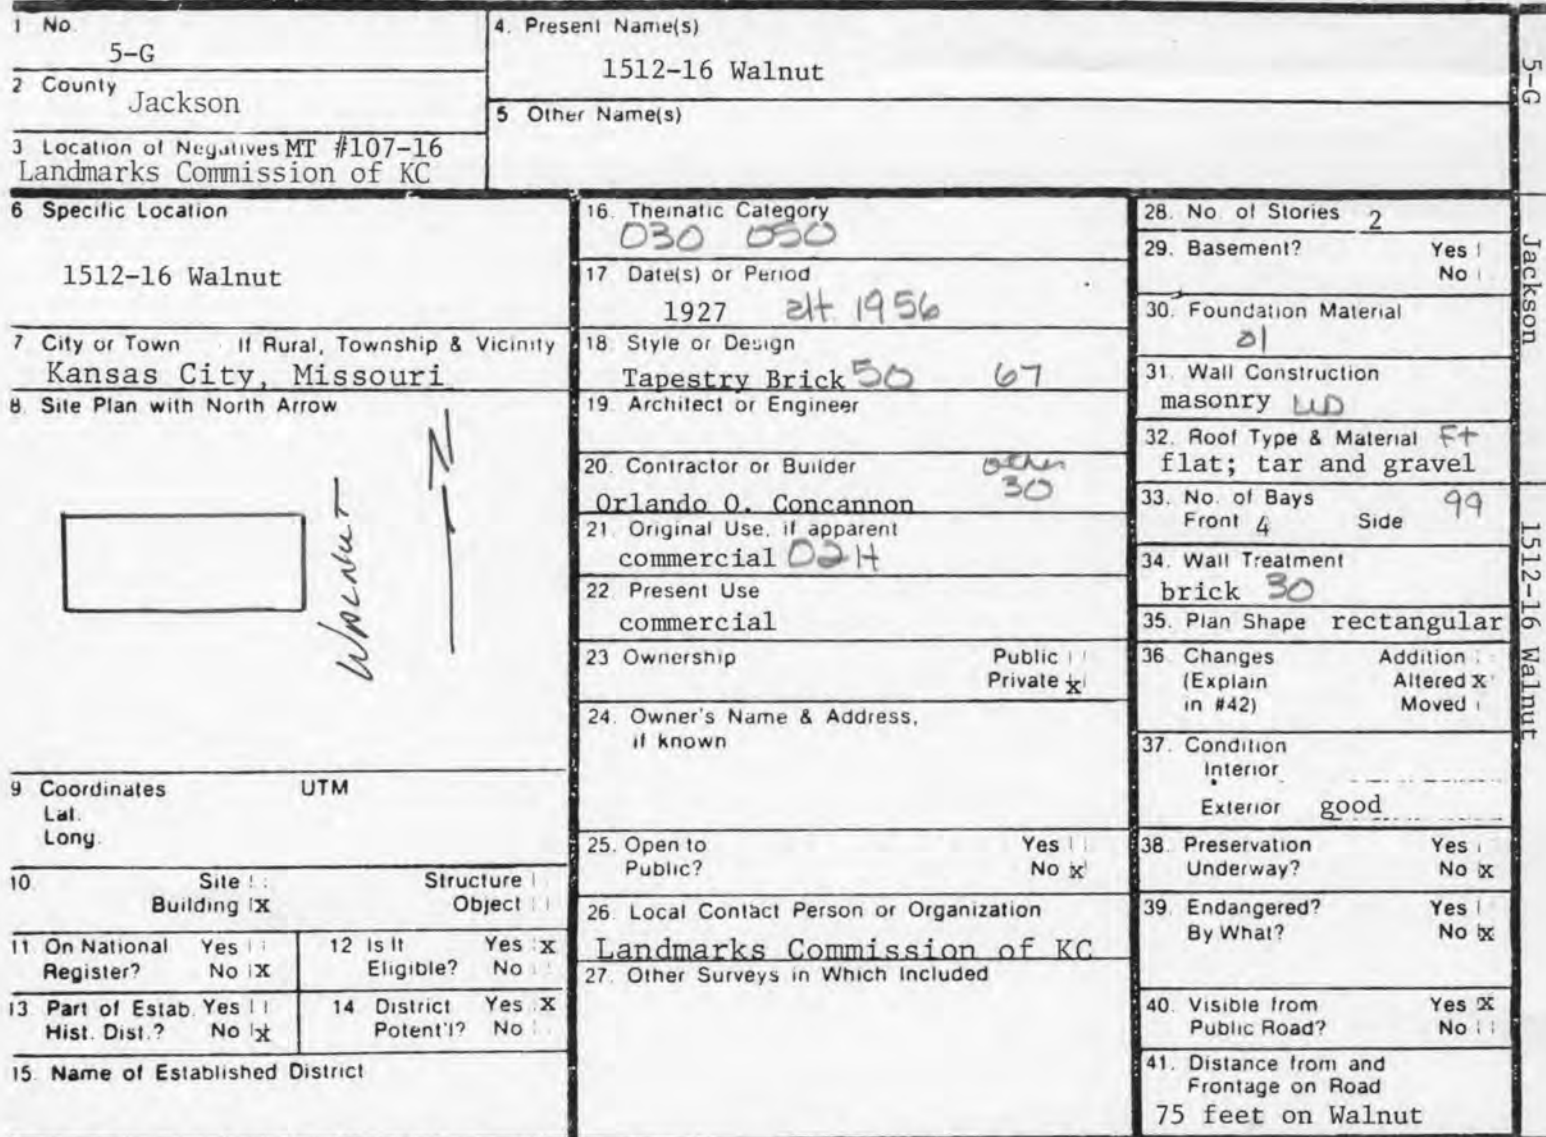 1 No.
5-G
2 County
Jackson
3 Location of Negatives MT #107-16
Landmarks Commission of KC
4. Present Name(s)
1512-16 Walnut
5 Other Name(s)
6 Specific Location
1512-16 Walnut
7 City or Town If Rural, Township & Vicinity
Kansas City, Missouri
8. Site Plan with North Arrow
WALNUT
N
9 Coordinates UTM
Lat.
Long.
10. Site Structure
Building X Object
11 On National Yes
Register? No X
12 Is It Yes X
Eligible? No
13 Part of Estab. Yes
Hist. Dist.? No X
14 District Yes X
Potent'l? No
15. Name of Established District
16. Thematic Category
030 050
17 Date(s) or Period
1927 alt 1956
18. Style or Design
Tapestry Brick 50 67
19. Architect or Engineer
20. Contractor or Builder other
30
Orlando O. Concannon
21. Original Use, if apparent
commercial 02H
22. Present Use
commercial
23 Ownership Public
Private x
24. Owner's Name & Address,
if known
25. Open to Yes
Public? No x
26. Local Contact Person or Organization
Landmarks Commission of KC
27. Other Surveys in Which Included
28. No. of Stories 2
29. Basement? Yes
No
30. Foundation Material
01
31. Wall Construction
masonry UD
32. Roof Type & Material Ft
flat; tar and gravel
33. No. of Bays 99
Front 4 Side
34. Wall Treatment
brick 30
35. Plan Shape rectangular
36 Changes Addition
(Explain Altered X
in #42) Moved
37. Condition
Interior
Exterior good
38. Preservation Yes
Underway? No X
39. Endangered? Yes
By What? No X
40. Visible from Yes X
Public Road? No
41. Distance from and
Frontage on Road
75 feet on Walnut
5-G
Jackson
1512-16 Walnut